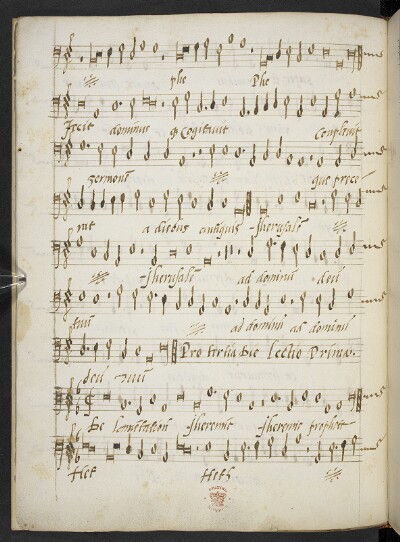 phe Phe
fecit dominus q cogitavit Complevit
sermonem que prece
rat a diebus antiquis Jherusale
Jherusale ad dominu deu
tuu ad dominu ad dominu
deu tuu Pro tertia Die Lectio Prima.
De lamentation Jheremie Jheremie prophete
Het Heth